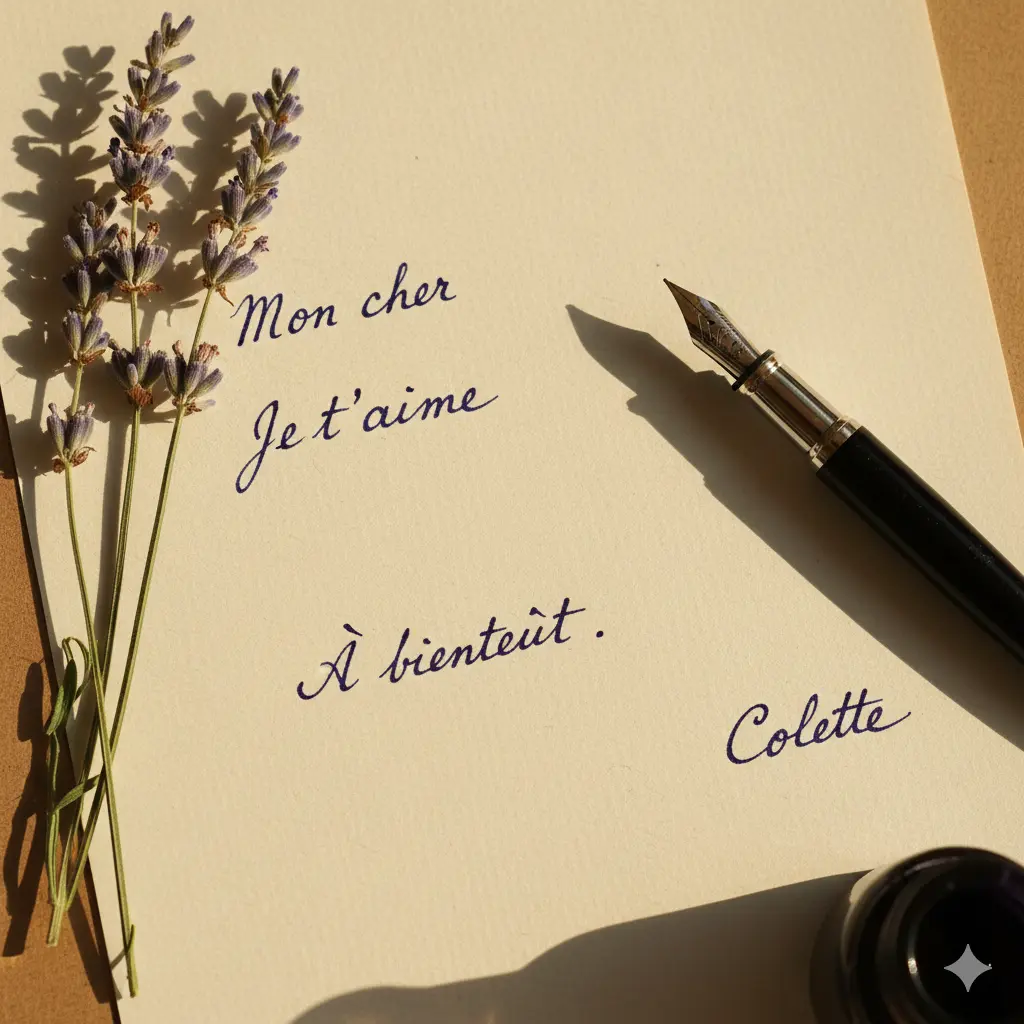 Mon cher
Je t'aime
À bienteût.
Colette